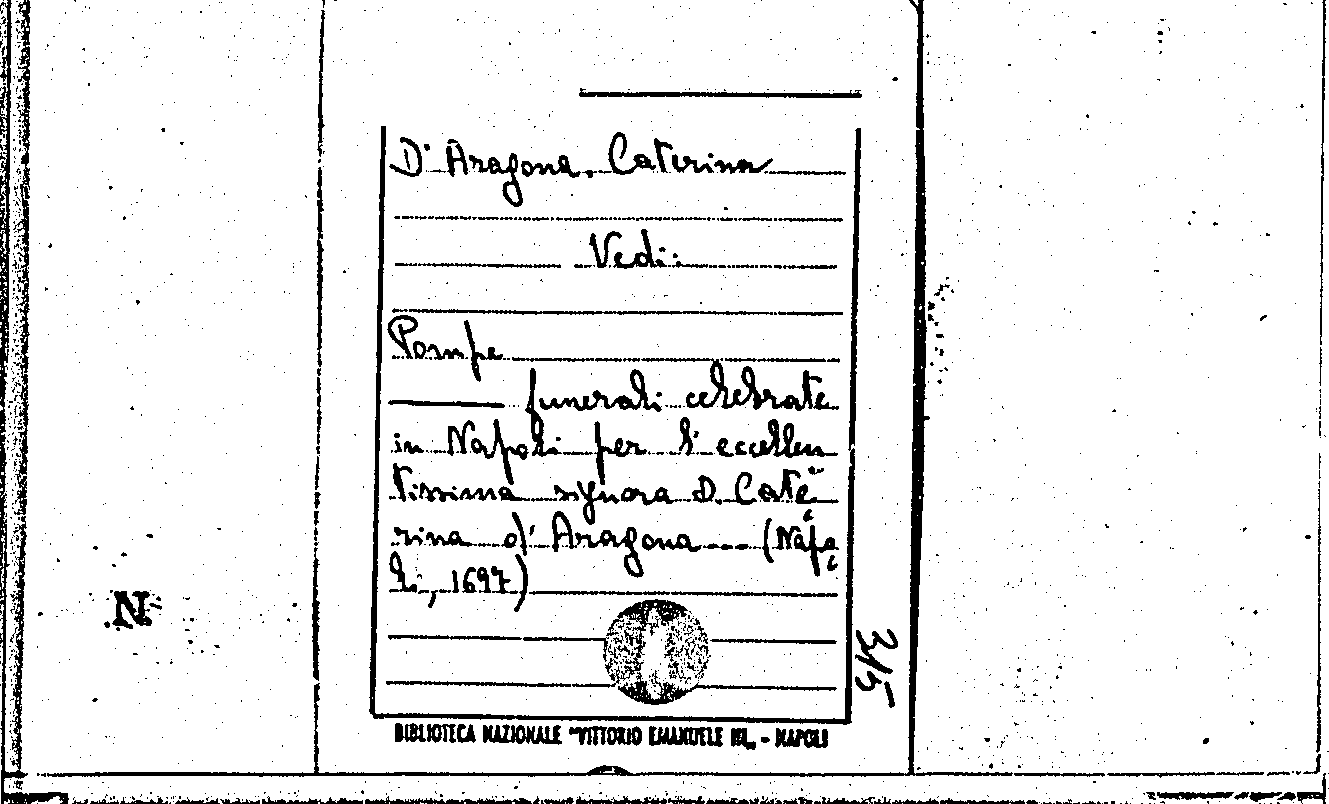 D'Aragona, Caterina
Vedi:
Pompe
funerali celebrate
in Napoli per l'eccellen
tissima signora D. Cate
rina d'Aragona --- (Napo
li, 1697)
315
N
BIBLIOTECA NAZIONALE "VITTORIO EMANUELE III„ - NAPOLI